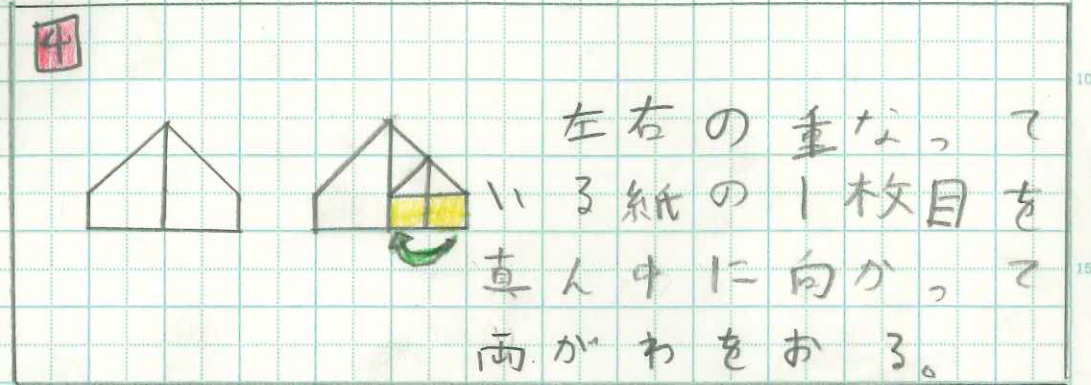 4
左右の重なって
いる紙の1枚目を
真ん中に向かって
両がわをおる。
10
15